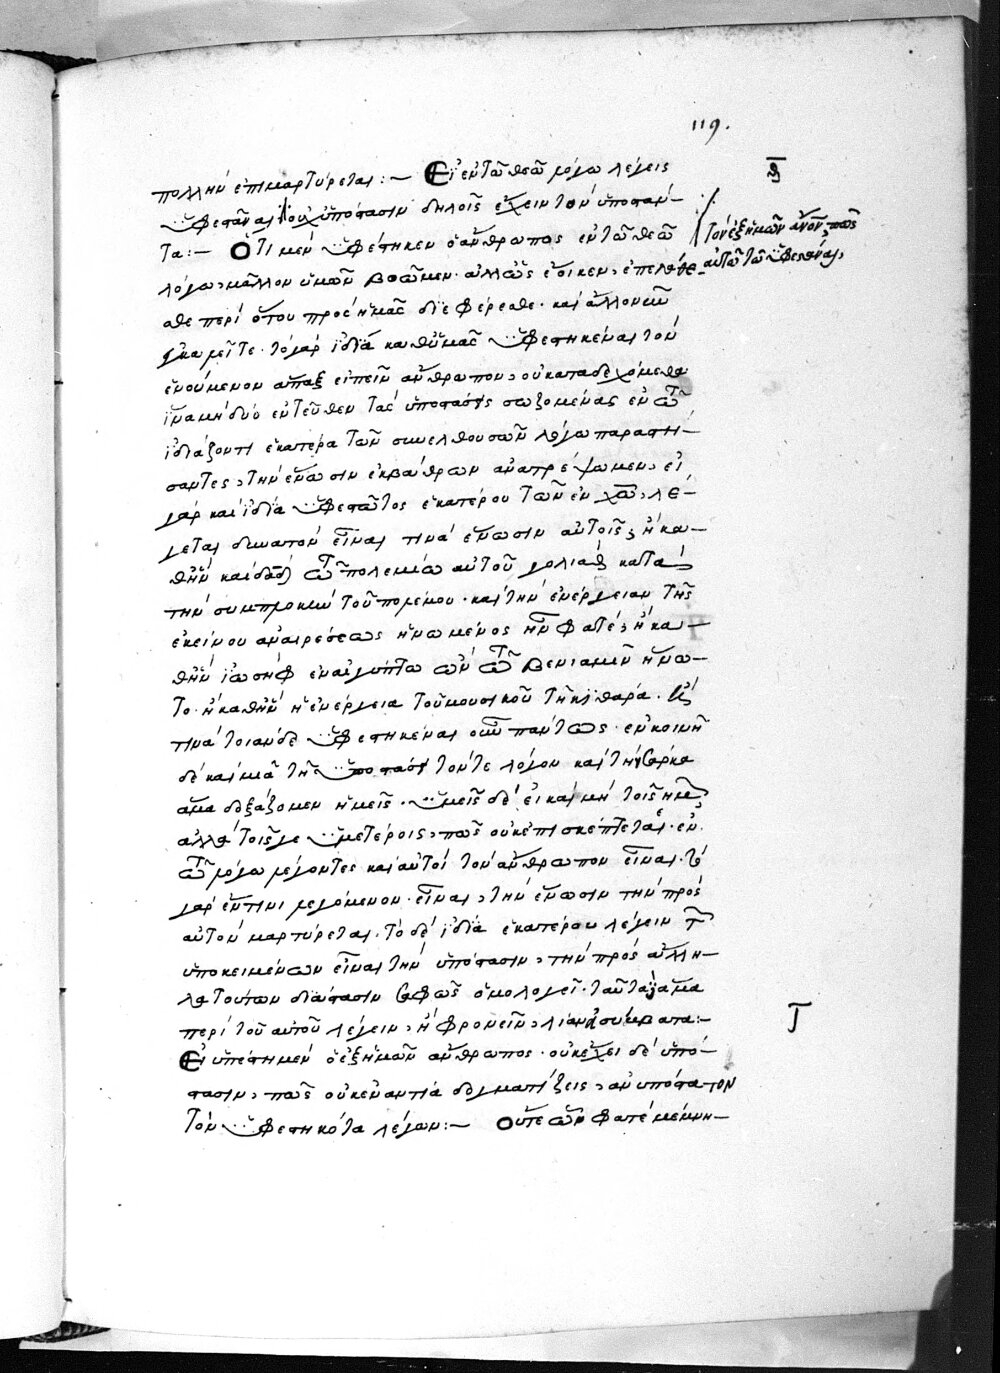 119.
πολλὴν ἐπιμαρτύρεται :~ Εἰ ἐν τῶ θεῶ λόγω λέγεις
ὑφεστᾶναι, οὐχ ὑπόστασιν δηλοῖς ἔχειν τὸν ὑποστάν-
τα :~ Ὅτι μὲν ὑφέστηκεν ὁ ἄνθρωπος ἐν τῶ θεῶ
τὸν ἐξ ἡμῶν ἄνον, πῶς
αὐτῶ τῶ ὑφεστάναι,
λόγω, μᾶλλον ὑμῶν βοῶμεν· ἀλλ' ὡς ἔοικεν, ἐπελάθε-
σθε περὶ ὅτου πρὸς ἡμᾶς διεφέρεσθε· καὶ ἄλλον
τὸ γὰρ ἰδία καθ' ὑμᾶς ὑφεστηκέναι τὸν
ἑνούμενον ἅπαξ εἰπεῖν ἄνθρωπον, οὐ καταδεχόμεθα
ἵνα μὴ δύο ἐντεῦθεν τὰς ὑποστάσεις σωζομένας ἐν τῶ
ἰδιάζοντι ἑκατέρα τῶν συνελθουσῶν λόγω παραστή-
σαντες, τὴν ἕνωσιν ἐκ βάθρων ἀνατρέψωμεν, εἰ
γὰρ καὶ ἰδία ὑφεστῶτος ἑκατέρου τῶν ἐν χῶ, λέ-
γεται δυνατὸν εἶναι τινὰ ἕνωσιν αὐτοῖς, ἢ κα-
θ' ἣν καὶ δαδ τῶ πολεμίω αὐτοῦ γολιὰθ κατὰ
τὴν συμπλοκὴν τοῦ πολέμου· καὶ τὴν ἐνέργειαν τῆς
ἐκείνου ἀναιρέσεως ἡνωμένος ἦν φατέ, ἢ κα-
θ' ἣν ἰωσὴφ ἐν αἰγύπτω ὢν τῶ βενιαμὶν ἥνω-
το· ἢ καθ' ἣν ἡ ἐνέργεια τοῦ μουσικοῦ τῆ κιθάρα·
τινὰ τοιάνδε ὑφεστηκέναι πάντως· ἐν κοινῆ
δὲ καὶ μιᾶ τῆ ὑποστάσει τόν τε λόγον καὶ τὴν σάρκα
ἅμα δοξάζομεν ἡμεῖς· ὑμεῖς δὲ εἰ καὶ μὴ τοῖς ἡμῶν,
ἀλλὰ τοῖς γε ὑμετέροις, πῶς οὐκ ἐπισκέπτεται· ἐν
τῶ λόγω λέγοντες καὶ αὐτοὶ τὸν ἄνθρωπον εἶναι· τὸ
γὰρ ἔν τινι λεγόμενον εἶναι, τὴν ἕνωσιν τὴν πρὸς
αὐτὸν μαρτύρεται· τὸ δὲ ἰδία ἑκατέρου λέγειν τῶν
ὑποκειμένων εἶναι τὴν ὑπόστασιν, τὴν πρὸς ἄλλη-
λα τούτων διάστασιν σαφῶς ὁμολογεῖ· ταῦτα δὲ ἅμα
περὶ τοῦ αὐτοῦ λέγειν, ἢ φρονεῖν, λίαν ἀσύμβατα :~
Εἰ ὑπέστη μὲν ὁ ἐξ ἡμῶν ἄνθρωπος· οὐκ ἔχει δὲ ὑπό-
στασιν, πῶς οὐκ ἐναντία δογματίζεις, ἀνυπόστατον
τὸν ὑφεστηκότα λέγων :~ Οὔτε ὢν φατέ μέμνη-